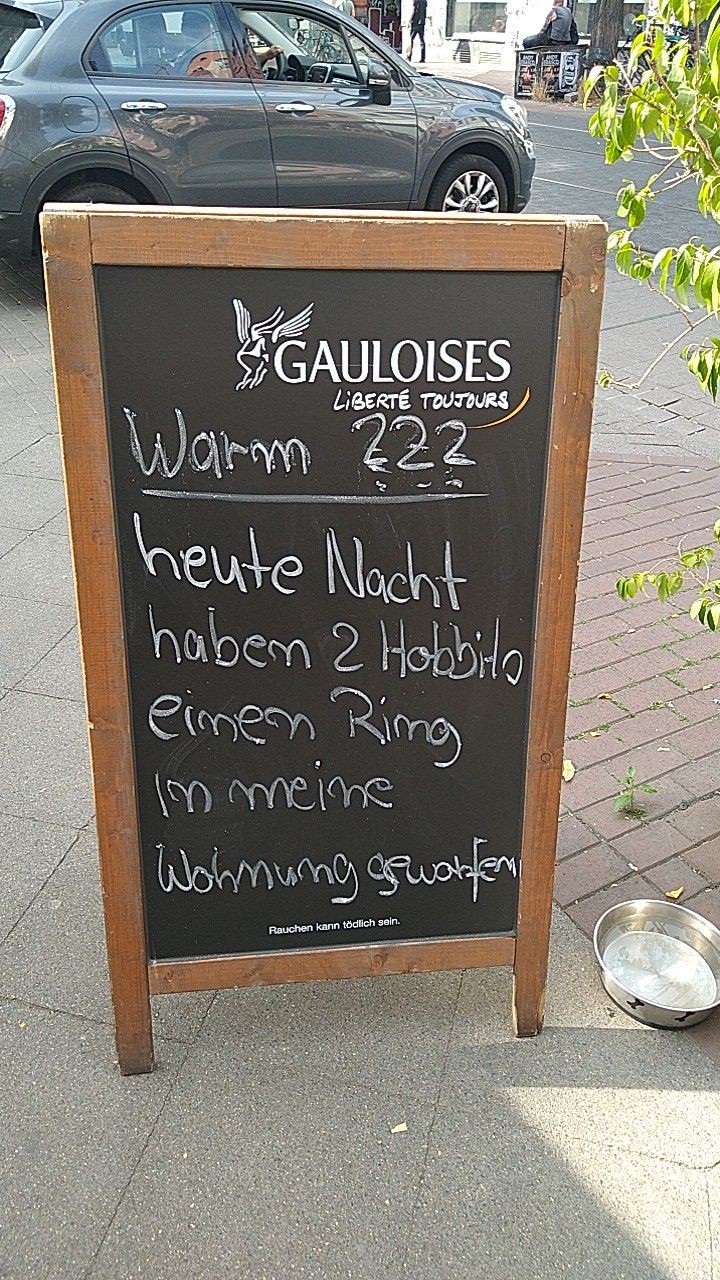 GAULOISES
LIBERTÉ TOUJOURS
Warm ???
heute Nacht
haben 2 Hobbits
einen Ring
in meine
Wohnung geworfen
Rauchen kann tödlich sein.